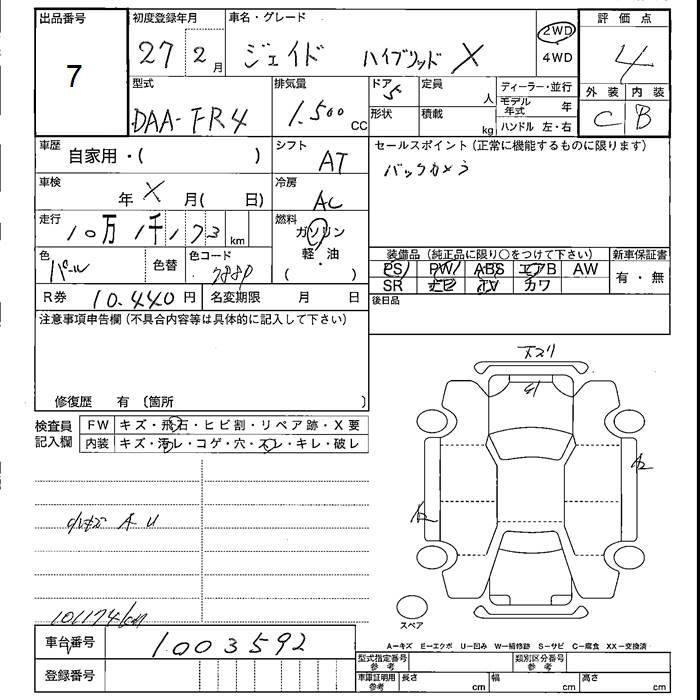 出品番号
7
初度登録年月
27年 2月
車名・グレード
ジェイド ハイブリッド X
2WD
4WD
評価点
4
外装 内装
C B
型式
DAA-FR4
排気量
1.500 CC
ドア
5
形状
定員
人
積載
kg
ディーラー・並行
モデル年式 年
ハンドル 左・右
車歴
自家用・( )
シフト
AT
セールスポイント(正常に機能するものに限ります)
バックカメラ
車検
年 X 月( 日)
冷房
AC
走行
10万1千173 km
燃料
ガソリン
軽・油
( )
色
パール
色替
色コード
R券 10.440円
名変期限 月 日
装備品(純正品に限り○をつけて下さい)
PS PW ABS エアB AW
SR ナビ TV カワ
新車保証書
有・無
後日品
注意事項申告欄(不具合内容等は具体的に記入して下さい)
修復歴 有 〔箇所 〕
検査員記入欄
FW キズ・飛石・ヒビ割・リペア跡・X要
内装 キズ・汚レ・コゲ・穴・スレ・キレ・破レ
小キズ A U
101174km
車台番号
1003592
登録番号
A2
A2
スペア
A−キズ E−エクボ U−凹み W−補修跡 S−サビ C−腐食 XX−交換済
型式指定番号 参考
類別区分番号 参考
車庫証明用 参考
長さ cm
幅 cm
高さ cm